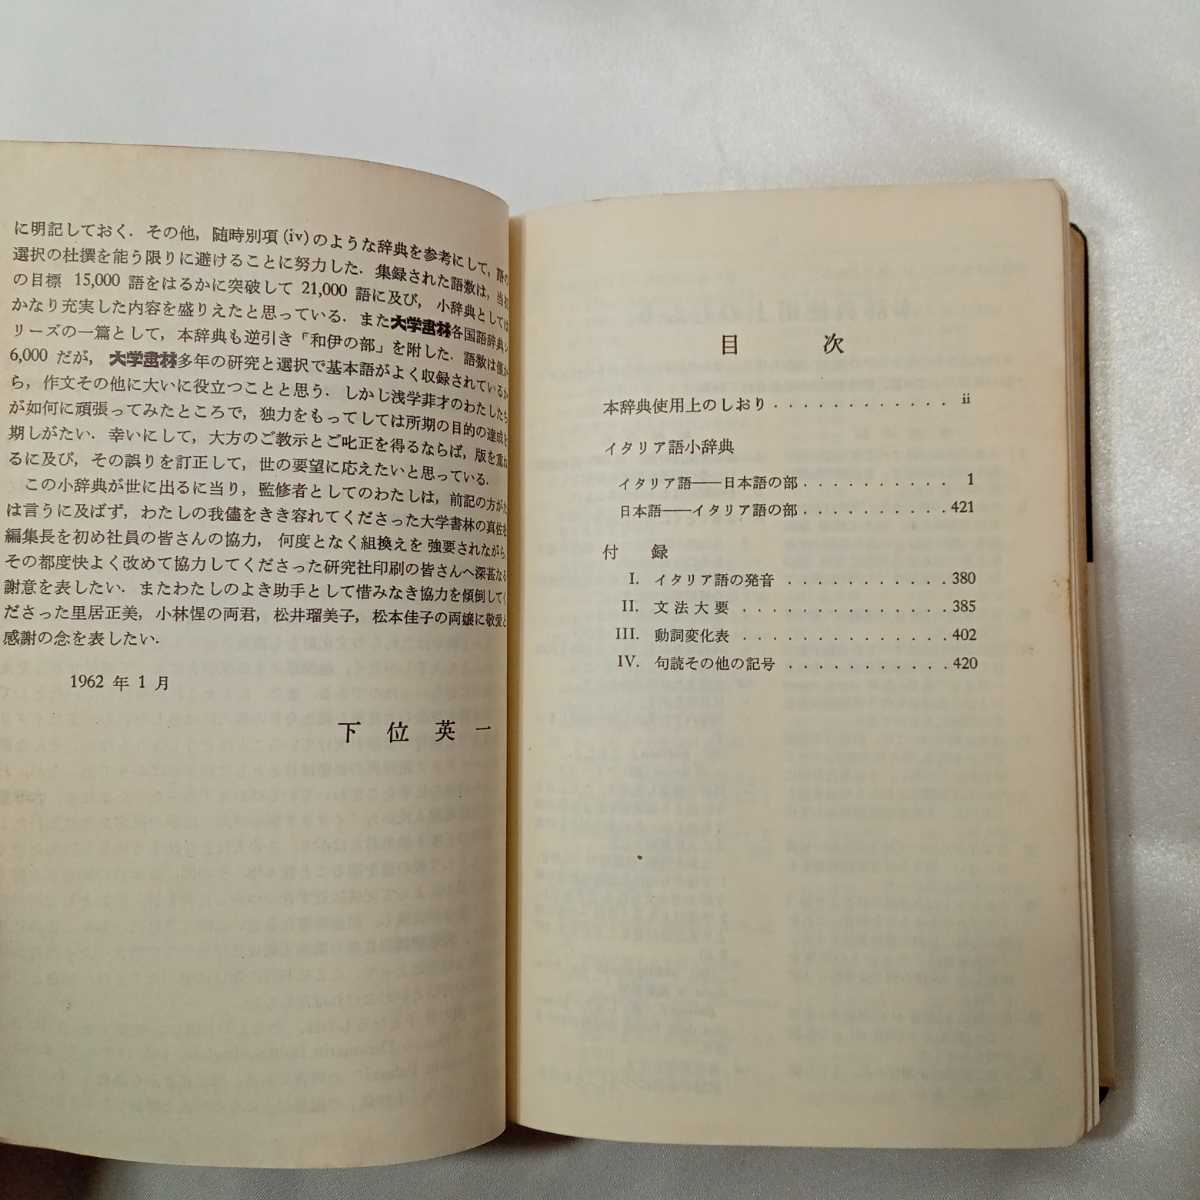 に明記しておく. その他, 随時別項(iv)のような辞典を参考にして, 語の
選択の杜撰を能う限りに避けることに努力した. 集録された語数は, 当初
の目標 15,000 語をはるかに突破して 21,000 語に及び, 小辞典としては
かなり充実した内容を盛りえたと思っている. また大学書林各国語辞典シ
リーズの一篇として, 本辞典も逆引き「和伊の部」を附した. 語数は僅か
6,000 だが, 大学書林多年の研究と選択で基本語がよく収録されているか
ら, 作文その他に大いに役立つことと思う. しかし浅学菲才のわたしたち
が如何に頑張ってみたところで, 独力をもってしては所期の目的の達成を
期しがたい. 幸いにして, 大方のご教示とご叱正を得るならば, 版を重ね
るに及び, その誤りを訂正して, 世の要望に応えたいと思っている.
この小辞典が世に出るに当り, 監修者としてのわたしは, 前記の方がた
は言うに及ばず, わたしの我儘をきき容れてくださった大学書林の真佐
編集長を初め社員の皆さんの協力, 何度となく組換えを強要されながら,
その都度快よく改めて協力してくださった研究社印刷の皆さんへ深甚なる
謝意を表したい. またわたしのよき助手として惜みなき協力を傾倒してく
ださった里居正美, 小林惺の両君, 松井瑠美子, 松本佳子の両嬢に敬愛と
感謝の念を表したい.
1962 年 1 月
下 位 英 一
目 次
本辞典使用上のしおり . . . . . . . . . . . . ii
イタリア語小辞典
イタリア語——日本語の部 . . . . . . . . . . 1
日本語——イタリア語の部 . . . . . . . . . . 421
付 録
I. イタリア語の発音 . . . . . . . . . . . . 380
II. 文法大要 . . . . . . . . . . . . . . . 385
III. 動詞変化表 . . . . . . . . . . . . . . 402
IV. 句読その他の記号 . . . . . . . . . . . . 420